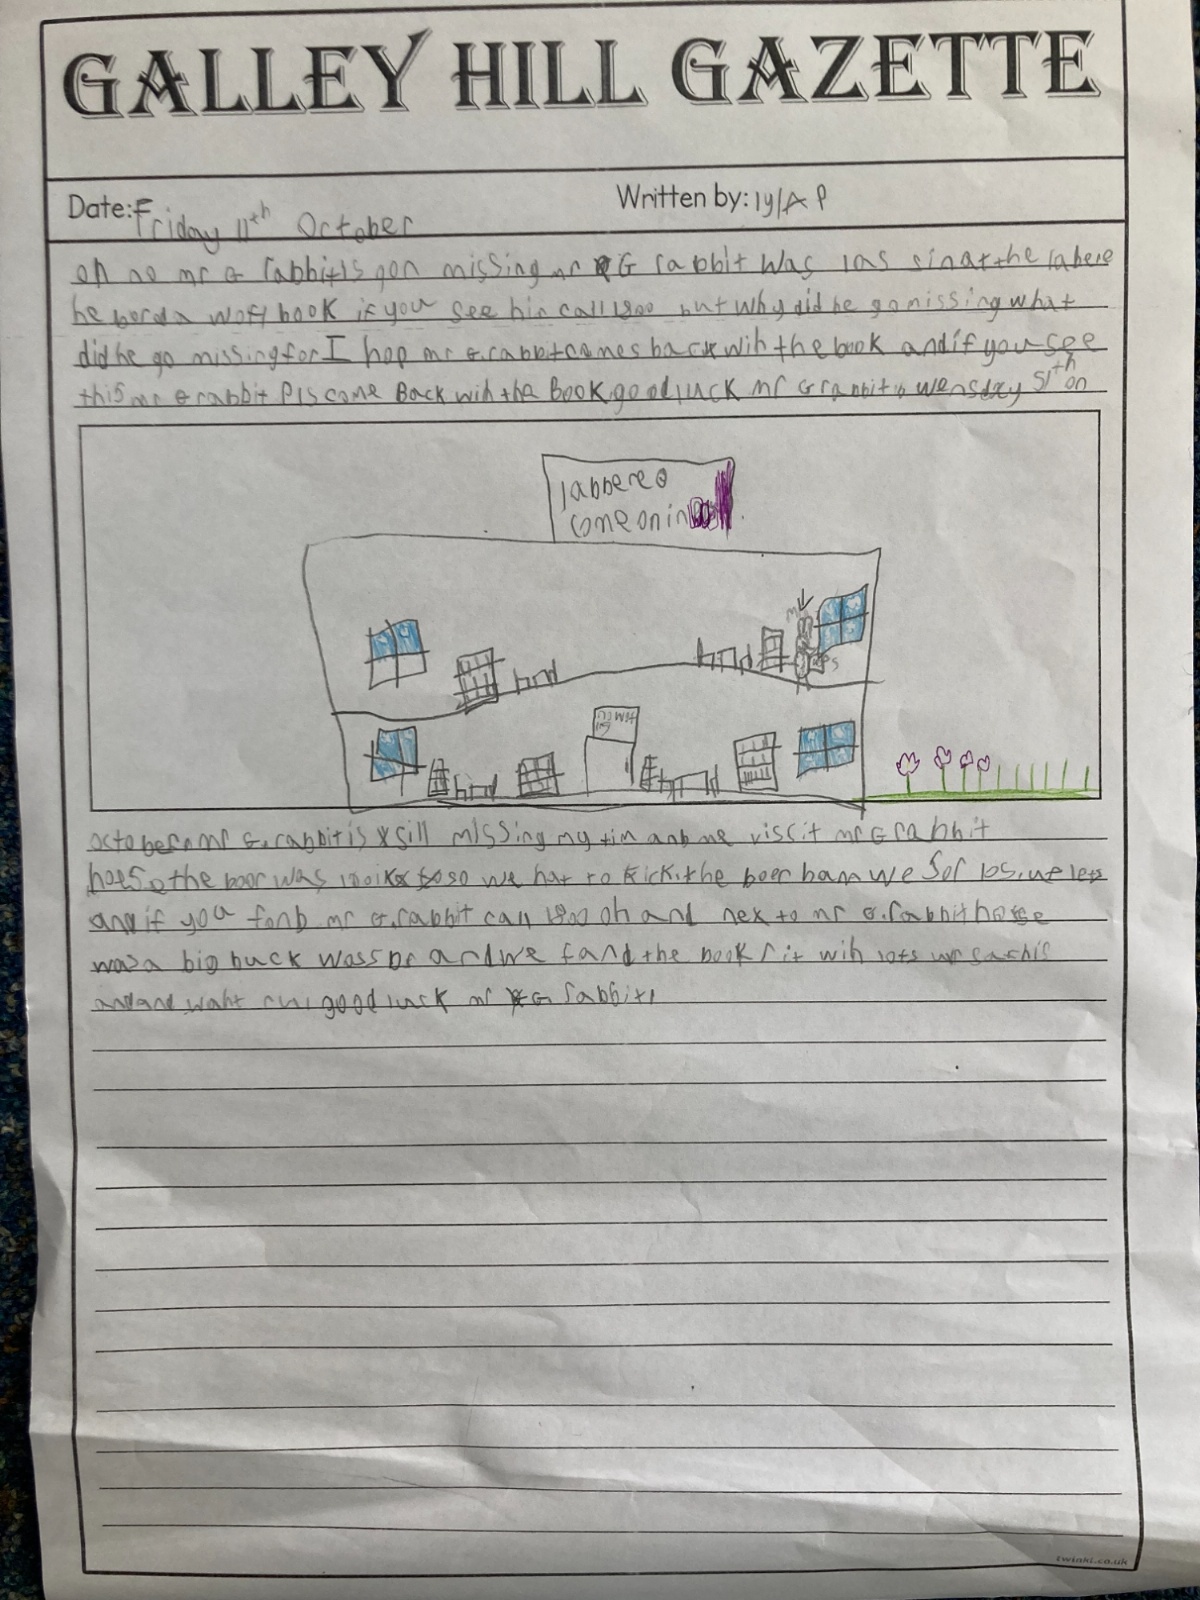 GALLEY HILL GAZETTE
Date: Friday 11th October
Written by: lylA P
oh no mr G rabbit is gon missing mr G rabbit was las sin at the labere
he borda wolf book if you see hin call 1800 but why did he go missing what
did he go missing for I hop mr G.rabbit comes back wih the book and if you see
this mr G rabbit Pls come Back wih the Book good luck mr G rabbit wensday 51th on
labbere
come on in
october mr G.rabbit is sill missing my tim anb me vissit mr G rabbit
the boor was so we hat to kick the boor
and if you fonb mr G.rabbit call 1800 oh and nex to mr G.rabbit
was a big buck and we fand the book wih lots
good luck mr G rabbit
twinkl.co.uk